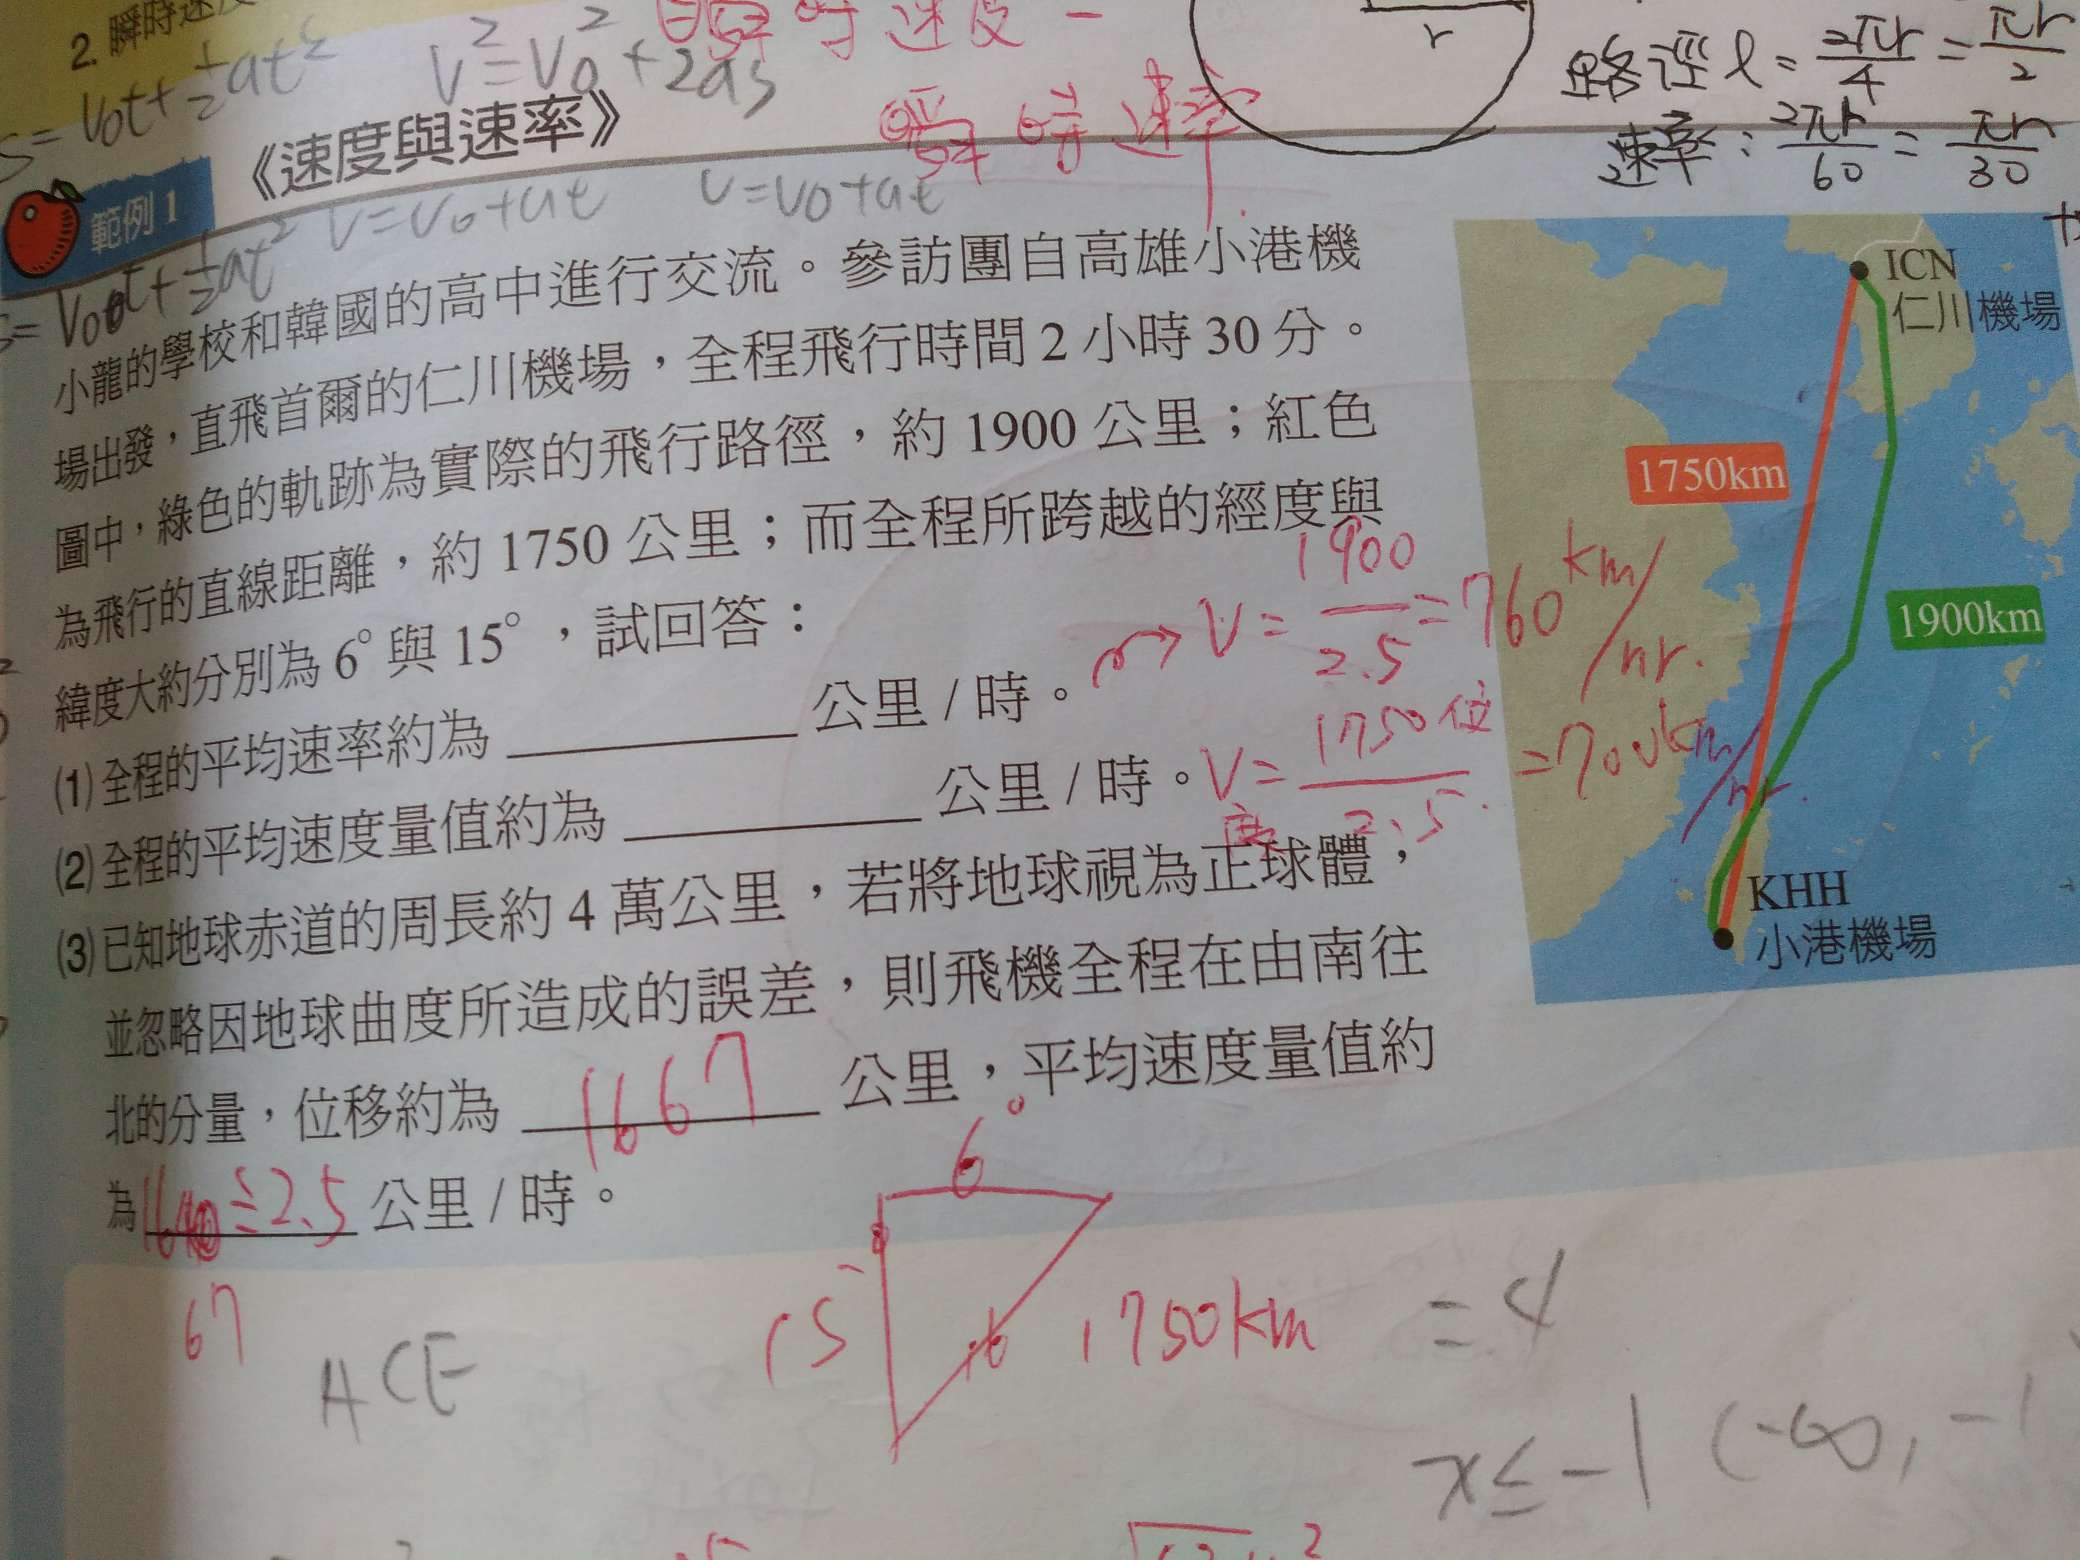 2. 瞬時速度
瞬時速度 -
r
路徑 l = 2πr/4 = πr/2
S = V0t + 1/2 at²
V² = V0² + 2as
瞬時速率
速率：2πr/60 = πr/30
《速度與速率》
範例 1
V = V0 + at
V = V0 + at
S = V0t + 1/2 at²
小龍的學校和韓國的高中進行交流。參訪團自高雄小港機
場出發，直飛首爾的仁川機場，全程飛行時間 2 小時 30 分。
圖中，綠色的軌跡為實際的飛行路徑，約 1900 公里；紅色
為飛行的直線距離，約 1750 公里；而全程所跨越的經度與
緯度大約分別為 6° 與 15°，試回答：
(1) 全程的平均速率約為 ＿＿＿＿ 公里 / 時。
V = 1900/2.5 = 760 km/hr.
(2) 全程的平均速度量值約為 ＿＿＿＿ 公里 / 時。
V度 = 1750位/2.5 = 700km/hr.
(3) 已知地球赤道的周長約 4 萬公里，若將地球視為正球體，
並忽略因地球曲度所造成的誤差，則飛機全程在由南往
北的分量，位移約為 1667 公里，平均速度量值約
為 ÷2.5 公里 / 時。
67
ICN
仁川機場
1750km
1900km
KHH
小港機場
6°
15
1750km
= 4
ACE
x ≤ -1 (-∞, -1